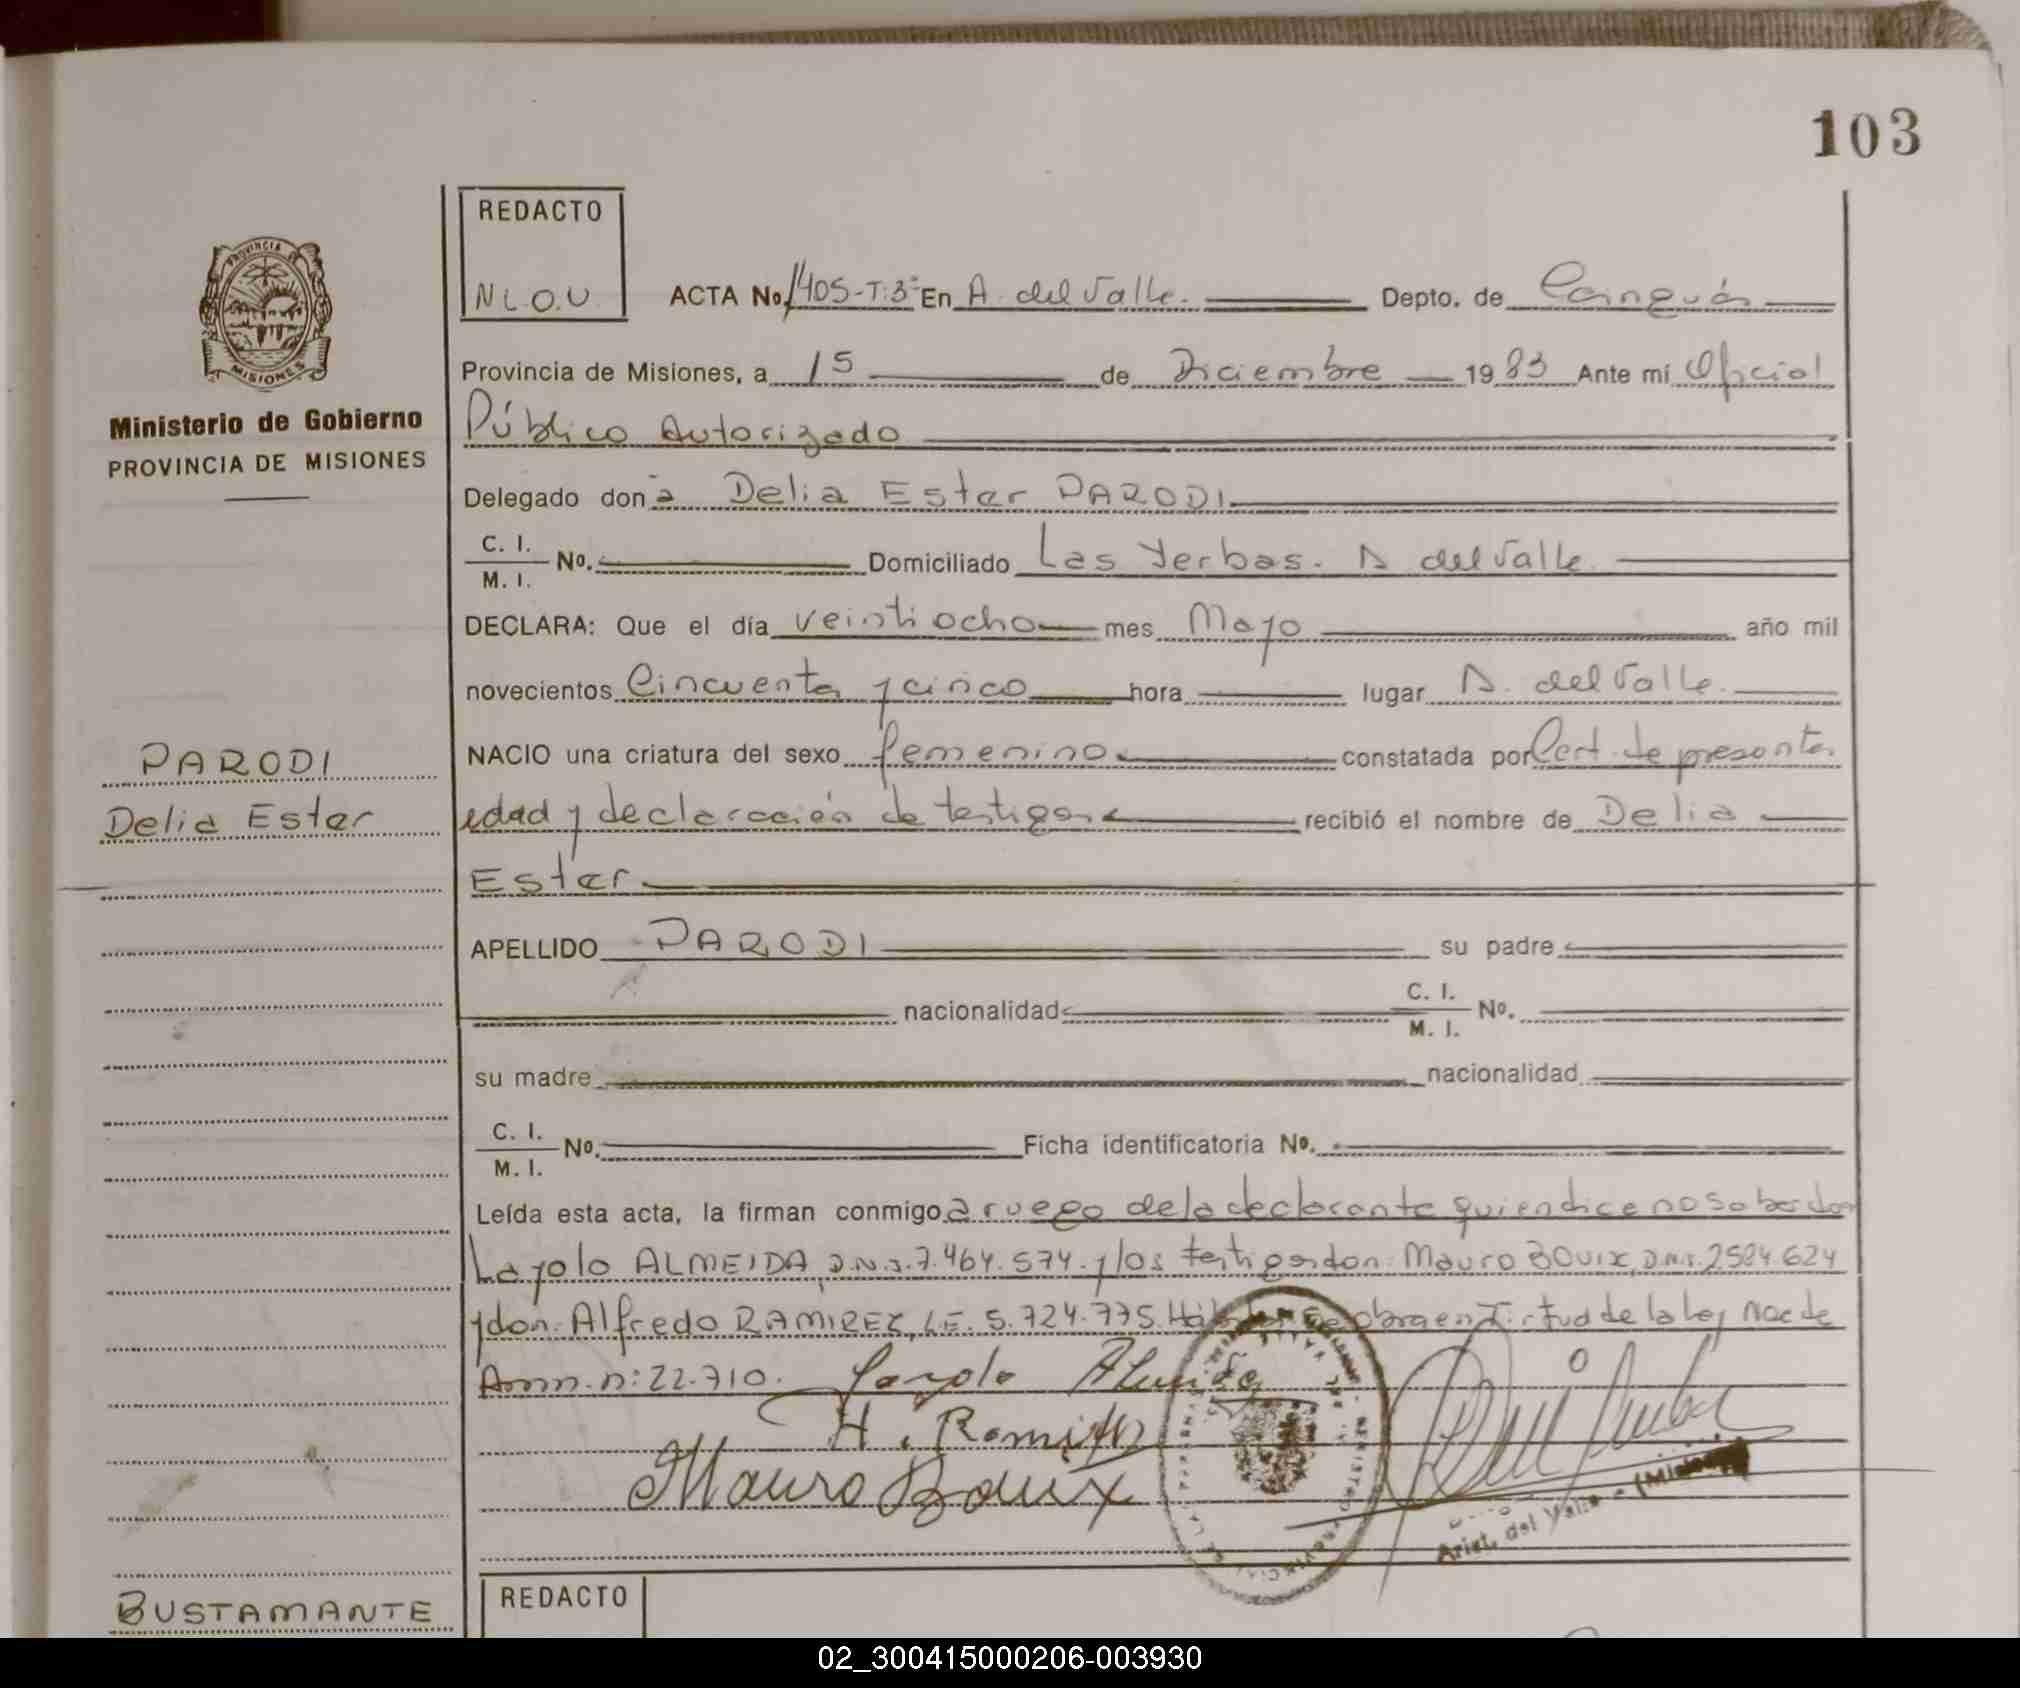 103
REDACTO
N.L.O.U.
ACTA No. 1405-T:3º En A. del Valle. Depto. de Cainguás
PROVINCIA
MISIONES
Provincia de Misiones, a 15 de Diciembre 1983 Ante mí Oficial
Ministerio de Gobierno
PROVINCIA DE MISIONES
Público Autorizado
Delegado don a Delia Ester PARODI
C. I.
M. I. No. Domiciliado Las Yerbas. A del Valle
DECLARA: Que el día veintiocho mes Mayo año mil
novecientos Cincuenta y cinco hora lugar A. del Valle.
NACIO una criatura del sexo femenino constatada por Cert. de presunta
PARODI
Delia Ester
edad y declaración de testigos recibió el nombre de Delia
Ester
APELLIDO PARODI su padre
nacionalidad C. I.
M. I. No.
su madre nacionalidad
C. I.
M. I. No. Ficha identificatoria No.
Leída esta acta, la firman conmigo a ruego de la declarante quien dice no saber don
Layolo ALMEIDA, D.N.I. 7.464.574. y los testigos don: Mauro BOUIX, D.N.I. 2584.624
y don: Alfredo RAMIREZ, L.E. 5.724.775. Se obra en Virtud de la Ley Nac de
Amn. n: 22.710. Layolo Almeida
Mauro Bouix
REGISTRO PROVINCIAL DE LAS PERSONAS
Arist. del Valle - (Misiones)
BUSTAMANTE
REDACTO
02_300415000206-003930